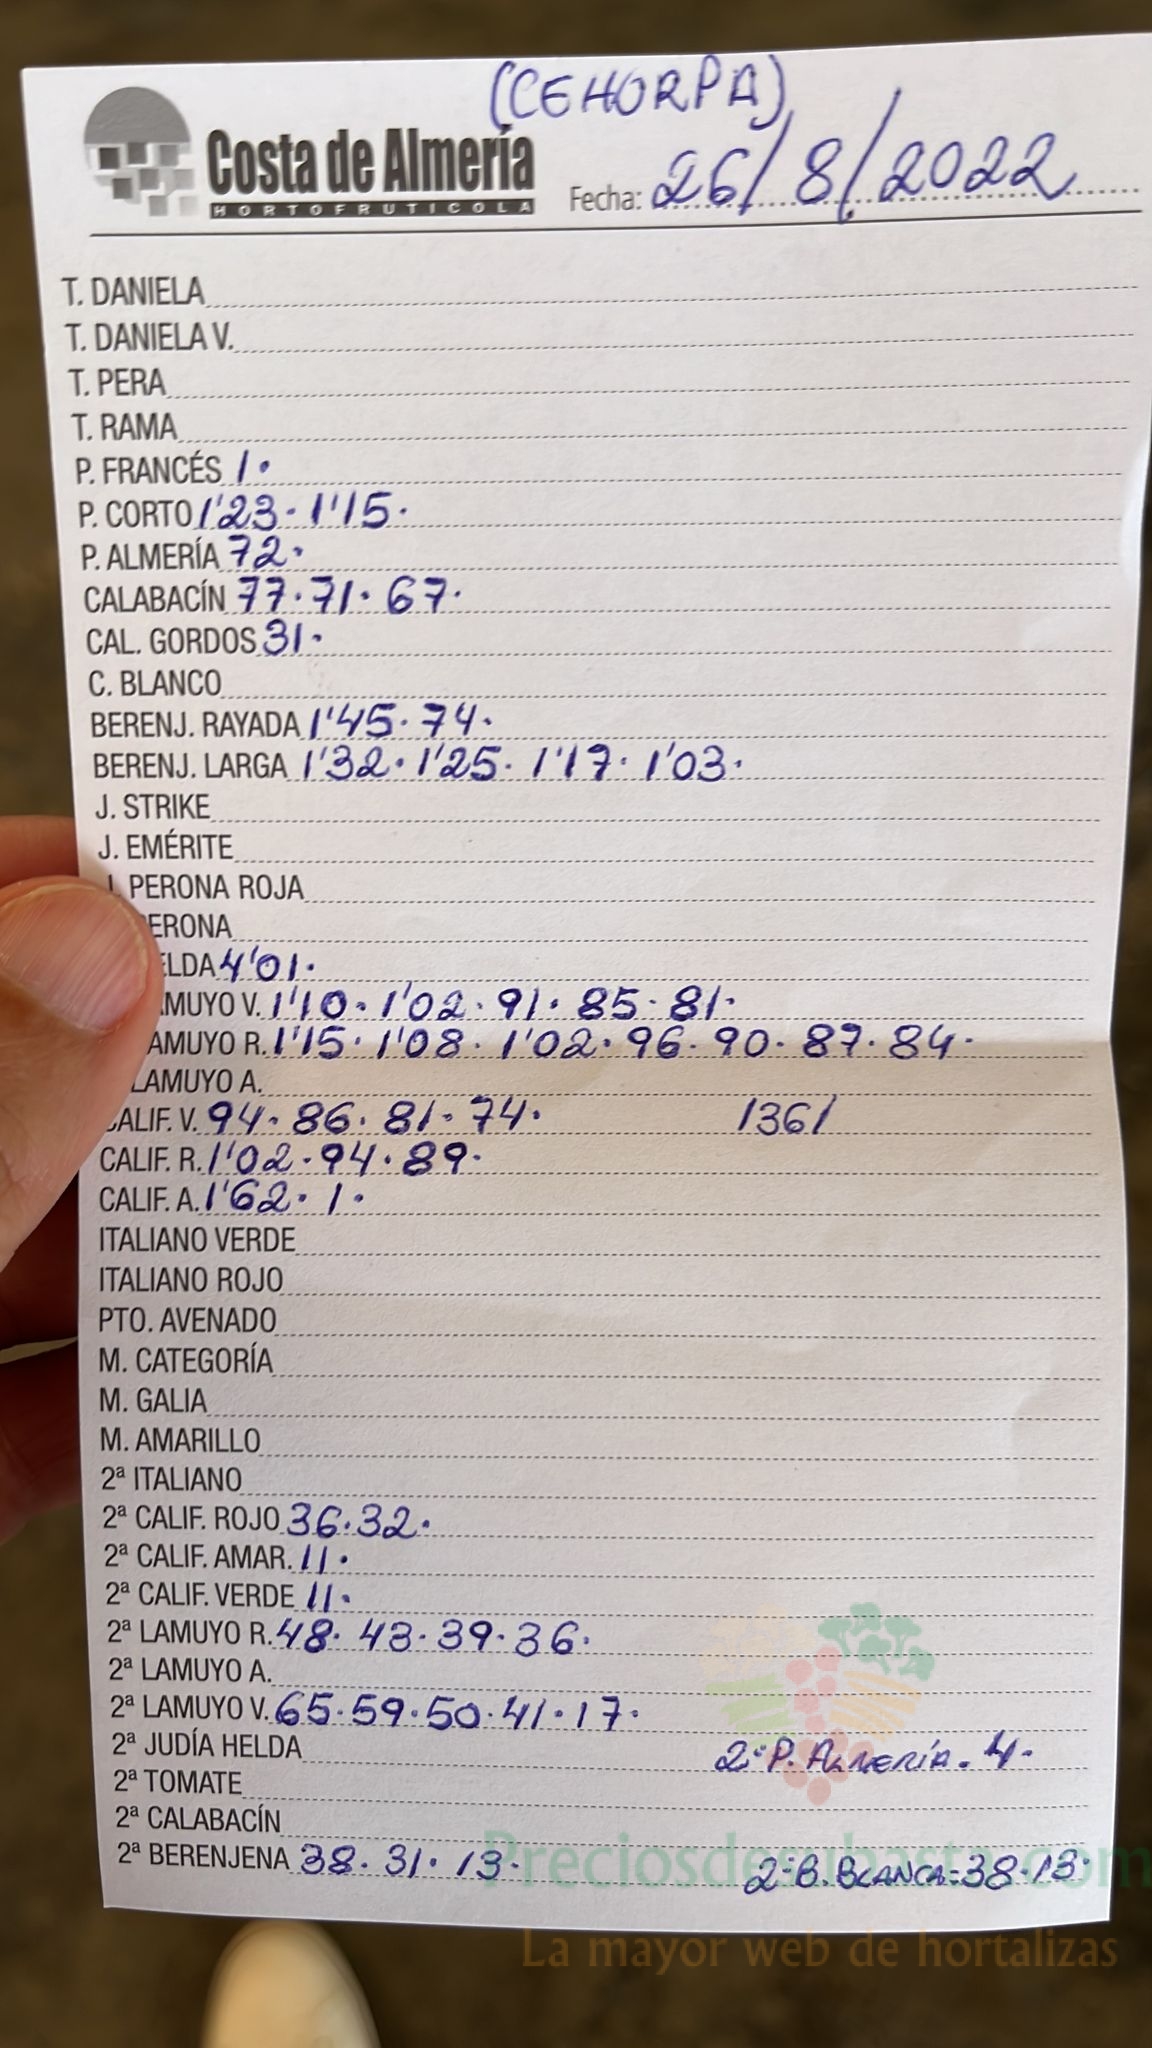 (CEHORPA)
Costa de Almería
HORTOFRUTICOLA
Fecha: 26/8/2022
T. DANIELA
T. DANIELA V.
T. PERA
T. RAMA
P. FRANCÉS 1.
P. CORTO 1'23. 1'15.
P. ALMERÍA 72.
CALABACÍN 77. 71. 67.
CAL. GORDOS 31.
C. BLANCO
BERENJ. RAYADA 1'45. 74.
BERENJ. LARGA 1'32. 1'25. 1'17. 1'03.
J. STRIKE
J. EMÉRITE
J. PERONA ROJA
PERONA
ELDA 4'01.
AMUYO V. 1'10. 1'02. 91. 85. 81.
AMUYO R. 1'15. 1'08. 1'02. 96. 90. 87. 84.
LAMUYO A.
CALIF. V. 94. 86. 81. 74. 1361
CALIF. R. 1'02. 94. 89.
CALIF. A. 1'62. 1.
ITALIANO VERDE
ITALIANO ROJO
PTO. AVENADO
M. CATEGORÍA
M. GALIA
M. AMARILLO
2ª ITALIANO
2ª CALIF. ROJO 36. 32.
2ª CALIF. AMAR. 11.
2ª CALIF. VERDE 11.
2ª LAMUYO R. 48. 43. 39. 36.
2ª LAMUYO A.
2ª LAMUYO V. 65. 59. 50. 41. 17.
2ª JUDÍA HELDA 2ª P. ALMERÍA. 4.
2ª TOMATE
2ª CALABACÍN
2ª BERENJENA 38. 31. 13. 2ª B. BLANCA=38.13.
Preciosdesubasta.com
La mayor web de hortalizas